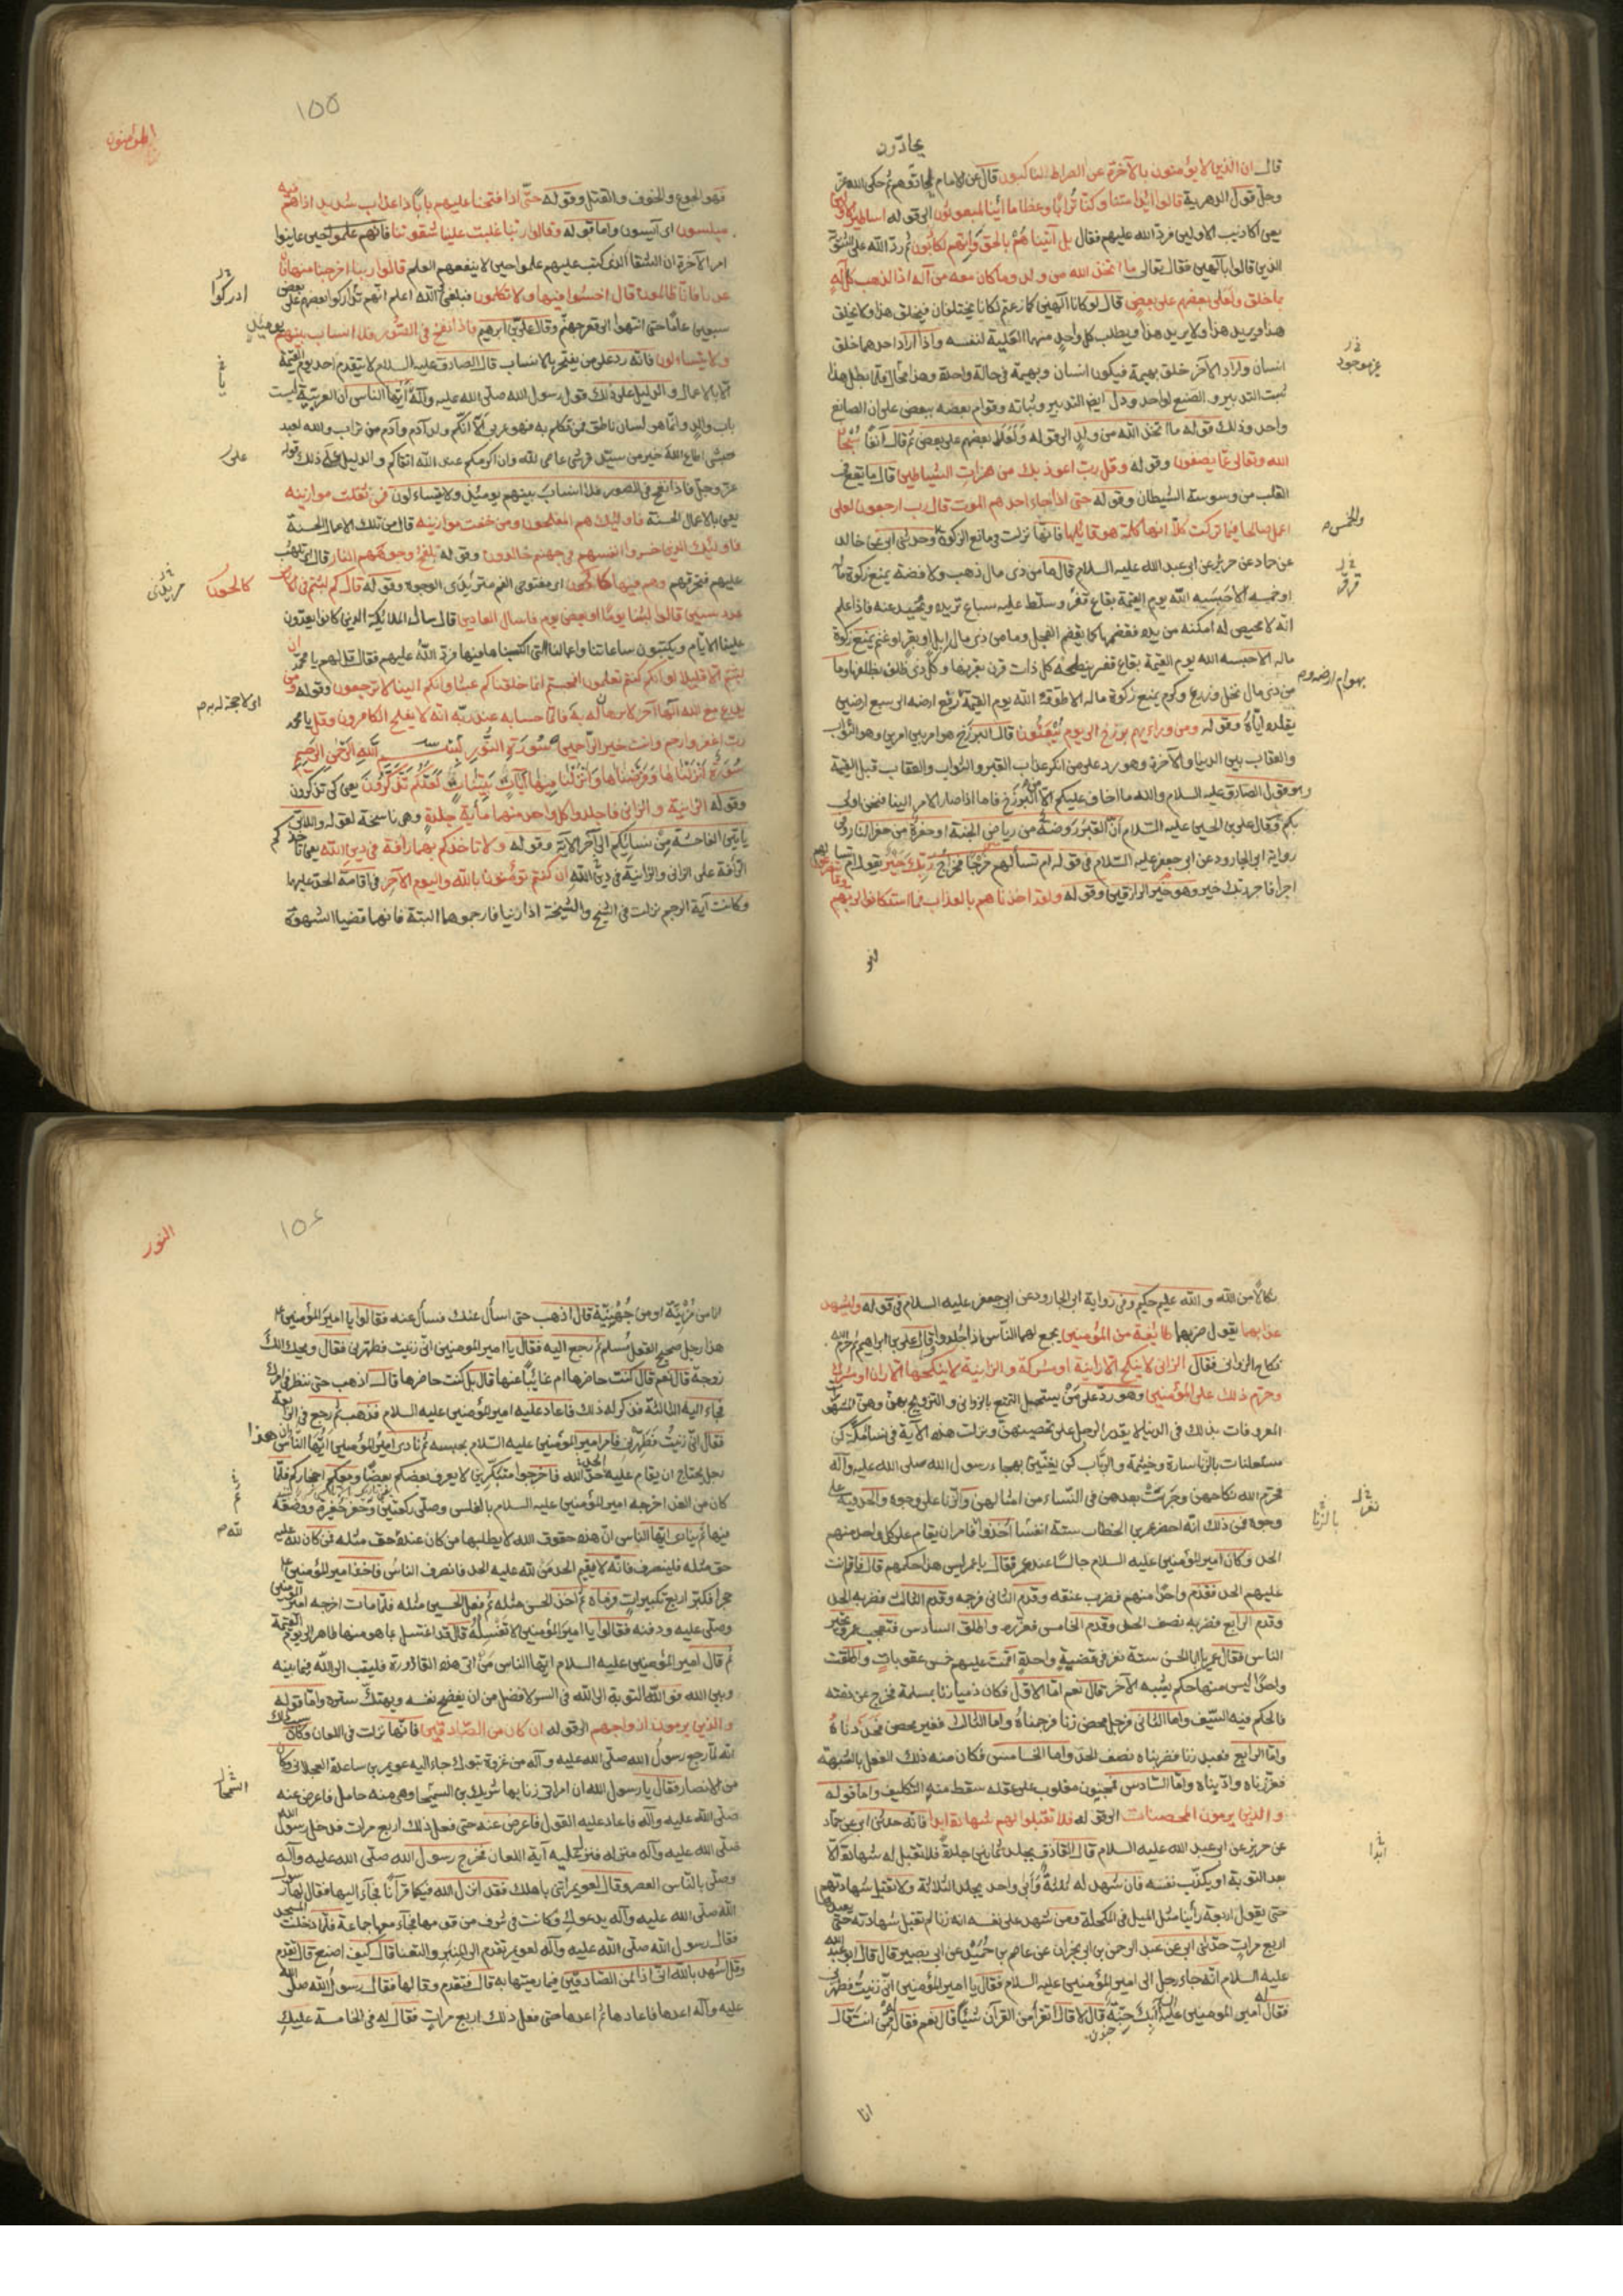 يحادّون
قال ان الذين لا يؤمنون بالآخرة عن الصراط لناكبون قال عن الامام لحادّوهم ثم حكى الله عزّ
وجلّ قول الدهرية قالوا ائذا متنا وكنّا تُرابًا وعظاما ائنا لمبعوثون الى قوله اساطير الاولين
يعنى اكاذيب الاولين فردّ الله عليهم فقال بل آتيناهُمْ بالحقّ وانهم لكاذبون ثم ردّ الله على الثنويّة
الذين قالوا بآلهين فقال تعالى ما اتخذ الله من ولد وما كان معه من آله اذا لذهب كل آله
بما خلق ولعلى بعضهم على بعض قال لو كانا آلهين كما زعمتم لكانا يختلفان فيخلق هذا ولا يخلق
هذا ويريد هذا ولا يريد هذا ويطلب كل واحد منهما الغلبة لنفسه واذا اراد احدهما خلق
انسان واراد الآخر خلق بهيمة فيكون انسان وبهيمة فى حالة واحدة وهذا محال فلما بطل هذا
ثبت التدبير والصنع لواحد ودل ايضا التدبير وثباته وقوام بعضه ببعض على ان الصانع
واحد وذلك قوله ما اتخذ الله من ولدٍ الى قوله وَلَعَلَا بعضهم على بعض ثم قال آنفًا سُبْحان
الله وتعالى عمّا يصفون وقوله وقل ربّ اعوذ بك من همزاتِ الشياطين قال ما يقع فى
القلب من وسوسة الشيطان وقوله حتى اذا جاء احدهم الموت قال رب ارجعون لعلى
اعمل صالحا فيما تركت كلّا انها كلمة هو قايلها فانّها نزلت فى مانع الزكوة وحدثنى ابى عن خالد
عن حماد عن حريز عن ابى عبد الله عليه السلام قال ما من ذى مال ذهب ولا فضة يمنع زكوة ماله
او خمسه الا حَبَسَه الله يوم القيمة بقاع قفرٍ وسلط عليه سباع تريده وتحيد عنه فاذا علم
انه لا محيص له امكنه من يده فقضمها كما يقضم الفجل وما من ذى مال ابل او بقر او غنم يمنع زكوة
ماله الا حبسه الله يوم القيمة بقاع قفر ينطحه كل ذات قرن بقرنها وكلّ ذى ظلف بظلفها وما
من ذى مال نخل وزرع وكرم يمنع زكوة ماله الا طوّقه الله يوم القيمة رَفع ارضه الى سبع ارضين
يقلده ايّاهُ وقوله ومن ورائهم برزخ الى يوم يُبْعَثُون قال البرزخ هو امر بين امرين وهو الثواب
والعقاب بين الدنيا والآخرة وهو رد على من انكر عذاب القبر والثواب والعقاب قبل القيمة
وهو قول الصادق عليه السلام والله ما اخاف عليكم الّا البَرْزخ فاما اذا صار الامر الينا فنحن اولى
بكم وقال على بن الحسين عليه السلام انّ القبرَ رَوضة من رياض الجنة او حفرة من حفر النار وفى
رواية ابى الجارود عن ابى جعفر عليه السلام فى قوله ام تسألهم خَرْجًا فخراج ربّك خير يقول ام تسألهم
اجرا فاجر ربّك خير وهو خير الرازقين وقوله ولقد اخذناهم بالعذاب فما استكانوا لربهم
غير موجود
والخمس
قرقر
المؤمنون
١٥٥
فهو الجوع والخوف والقتل وقوله حتّى اذا فتحنا عليهم بابًا ذا عذاب شديد اذا هم فيه
مبلسون اى آيسون واما قوله وقالوا ربّنا غلبت علينا شقوتنا فانهم علموا حين عاينوا
امر الآخرة ان الشقا الذى كتب عليهم علموا حين لا ينفعهم العلم قالوا ربنا اخرجنا منها فان
عدنا فانّا ظالمون قال اخسئوا فيها ولا تكلمون فبلغنى والله اعلم انّهم تداركوا بعضهم على بعض
سبعين عامًا حتى انتهوا الى قعر جهنّم وقال على بن ابرهيم فاذا نفخ فى الصّور فلا انساب بينهم يومئذ
ولا يتساءلون فانّه رد على من يفتخر بالانساب قال الصادق عليه السلام لا يتقدم احد يوم القيمة
الّا بالاعمال والدليل على ذلك قول رسول الله صلى الله عليه وآله أيّها الناس ان العربيّة ليست
باب والدٍ وانّما هو لسان ناطق فمن تكلم به فهو عربى ألا انّكم ولد آدم وآدم من تراب والله لعبد
حبشى اطاع الله خير من سيّد قرشى عاصى لله وان اكرمكم عند الله اتقاكم والدليل على ذلك قوله
عزّ وجلّ فاذا نفخ فى الصور فلا انساب بينهم يومئذٍ ولا يتساءلون فمن ثقلت موازينه
يعنى بالاعمال الحسنة فاولئك هم المفلحون ومن خفت موازينه قال من تلك الاعمال الحسنة
فاولئك الذين خسروا انفسهم فى جهنم خالدون وقوله تلفح وجوههم النار قال اى تلهب
عليهم فتحرقهم وهم فيها كالحون اى مفتوحى الفم متربّدى الوجوه وقوله قال كم لبثتم فى الارض
عدد سنين قالوا لبثنا يومًا او بعض يوم فاسال العادين قال سال الملائكة الذين كانوا يعدّون
علينا الايّام ويكتبون ساعاتنا واعمالنا التى اكتسبناها فيها فردّ اللهُ عليهم فقال قل لهم يا محمّد ان
لبثتم الّا قليلا لو انكم كنتم تعلمون افحسبتم انما خلقناكم عبثًا وانكم الينا لا ترجعون وقوله ومن
يدع مع الله آلهًا آخر لا برهان له به فانّما حسابه عند ربّه انّه لا يفلح الكافرون وقل يا محمد
ربّ اغفر وارحم وانت خير الرّاحمين سُورَة النُّور بِسْمِ اللهِ الرَّحمٰنِ الرَّحِيمِ
سُورَةٌ أنزَلْنَاهَا وَفَرَضْنَاهَا وَأنزَلْنَا فِيهَا آيَاتٍ بَيِّنَاتٍ لَعَلَّكُم تَذَكَّرُونَ يعنى كى تذكرون
وقوله الزانية والزانى فاجلدوا كل واحد منهما مأية جلدةٍ وهى ناسخة لقوله واللاتى
يأتين الفاحشة مِنْ نسائِكم الى آخر الآية وقوله ولا تاخذكم بهما رأفة فى دين الله يعنى تاخذكم
الرّأفة على الزانى والزّانية فى دين الله ان كنتم تؤمنون بالله واليوم الآخر فى اقامة الحدّ عليها
وكانت آية الرجم نزلت فى الشيخ والشيخة اذا زنيا فارجموهما البتة فانهما قضيا الشهوة
ادركوا
على
كالحون
نكالًا من الله والله عليم حكيم وفى رواية ابى الجارود عن ابى جعفر عليه السلام فى قوله وليشهد
عذابهما يقول ضربهما طائفة من المؤمنين يجمع لهما النّاس اذا جُلدوا وقال على بن ابراهيم ثم حرّم الله
نكاح الزوانى فقال الزانى لا ينكح الّا زانية او مشركة والزانية لا ينكحها الّا زان او مشرك
وحرّم ذلك على المؤمنين وهو ردّ على مَنْ يستحل التمتع بالزوانى والتزويج بهنّ وهنّ المشهورات
المعروفات بذلك فى الدنيا لا يقدر الرجل على تحصينهنّ ونزلت هذه الآية فى نساء مكّة كنّ
مستعلنات بالزّنا سارة وحنتمة والرّباب كنّ يغنّين بهجاء رسول الله صلى الله عليه وآله
فحرّم الله نكاحهنّ وجَرَتْ بعدهن فى النّساء من امثالهنّ والزّنا على وجوه والحد فيه على
وجوه فمن ذلك انّه احضر عمر بن الخطاب ستة انفسًا اُخذوا فامر ان يقام على كل واحد منهم
الحد وكان امير المؤمنين عليه السلام جالسًا عند عمر فقال يا عمر ليس هذا حكمهم قال فاقم انت
عليهم الحد فقدّم واحدًا منهم فضرب عنقه وقدم الثانى فرجمه وقدم الثالث فضربه الحد
وقدم الرابع فضربه نصف الحد وقدم الخامس فعزّره واطلق السادس فتعجب عمر وتحيّر
الناس فقال عمر يا ابا الحسن ستة نفر فى قضيةٍ واحدةٍ اقمت عليهم خمس عقوباتٍ واطلقت
واحدًا ليس منها حكم يشبه الآخر قال نعم امّا الاوّل فكان ذميا زنا بمسلمة فخرج عن ذمته
فالحكم فيه السّيف واما الثانى فرجل محصن زنا فرجمناهُ واما الثالث فغير محصن فحدّدناهُ
وامّا الرابع فعبد زنا فضربناه نصف الحدّ واما الخامس فكان منه ذلك الفعل بالشبهة
فعزّرناه وادّبناه وامّا السّادس فمجنون مغلوب على عقله سقط منه التكليف واما قوله
والذين يرمون المحصنات الى قوله فلا تقبلوا لهم شهادة ابدا فانّه حدثنى ابى عن حمّاد
عن حريز عن ابى عبد الله عليه السلام قال القاذف يجلد ثمانين جلدةً فلا تقبل له شهادة الّا
بعد التوبة او يكذّب نفسه فان شهد له ثلثةٌ وَأبَى واحد يجلد الثلاثة ولا تقبل شهادتهم
حتى يقول اربعة رأينا مثل الميل فى المكحلة ومن شهد على نفسه انه زنا لم تقبل شهادته حتى
اربع مرات حدّثنى ابى عن عبد الرحمن بن ابى نجران عن عاصم بن حُمَيْد عن ابى بصير قال قال ابو عبد الله
عليه السلام انّه جاء رجل الى امير المؤمنين عليه السلام فقال يا امير المؤمنين انّى زنيتُ فطهّرنى
فقال له امير المؤمنين عليه السلام أبِكَ جِنّة قال لا قال تقرأ من القرآن شَيْئًا قال نعم فقال ممّن انت قال
جنون
انا
بالزنا
ابدا
النور
١٥٦
انا من مُزَيْنَة او من جُهَيْنَة قال اذهب حتى اسأل عنك فسأل عنه فقالوا يا اميرَ المؤمنين
هذا رجل صحيح العقل مُسلم ثم رجع اليه فقال يا امير المؤمنين انّى زنيت فطهّرنى فقال ويحك الكَ
زوجة قال نعم قال كنت حاضرها ام غائبًا عنها قال بل كنت حاضرها قال اذهب حتى ننظر فى امرك
فجاء اليه الثالثة فذكر له ذلك فاعاد عليه امير المؤمنين عليه السلام فذهب ثم رجع فى الرابعة
فقال انّى زَنيتُ فَطَهِّرْنِى فامر امير المؤمنين عليه السلام بحبسه ثم نادى امير المؤمنين ايّها النّاس ان هذا
رجل يحتاج ان يقام عليه حدّ الله فاخرجوا متنكّرين لا يعرف بعضكم بعضًا ومعكم احجاركم فلمّا
كان من الغد اخرجه امير المؤمنين عليه السلام بالغلس وصلّى ركعتين وحَفَر حُفيرة ووضعه
فيها ثم نادى ايّها الناس انّ هذه حقوق الله لا يطلبها من كان عنده حق مثله فمن كان لله عليه
حق مثله فلينصرف فانّه لا يُقيم الحد مَن لله عليه الحد فانصرف الناس فاخذ امير المؤمنين
حجرا فكبّر اربع تكبيرات ورماه ثم أخذ الحسن مثله ثم فعل الحسين مثله فلمّا مات اخرجه امير المؤمنين
وصلّى عليه ودفنه فقالوا يا امير المؤمنين الا تغْسِلُه قال قد اغتسل بما هو منها طاهر الى يوم القيمة
ثم قال امير المؤمنين عليه السلام ايّها الناس مَنْ اتى هذه القاذورة فليتب الى الله فيما بينه
وبين الله فو اللهِ لتوبة الى الله فى السر لافضل من ان يفضح نفسه ويهتك ستره وامّا قوله
والذين يرمون ازواجهم الى قوله ان كان من الصّادقين فانّها نزلت فى اللعان وكان سبب ذلك
انّه لمّا رجع رسولُ الله صلى الله عليه وآله من غزوة تبوك جاء اليه عويمر بن ساعدة العجلانى وكان
من الانصار فقال يا رسول الله ان امراتى زنا بها شريك بن السمحا وهى منه حامل فاعرض عنه
صلى الله عليه وآله فاعاد عليه القول فاعرض عنه حتى فعل ذلك اربع مرات فدخل رسول الله
صلّى الله عليه وآله منزله فنزل عليه آية اللعان فخرج رسول الله صلّى الله عليه وآله
وصلّى بالنّاس العصر وقال لعويمر ائتنى باهلك فقد انزل الله فيكما قرآنًا فجآء اليها فقال لها رسول
الله صلّى الله عليه وآله يدعوكِ وكانت فى شرف من قومها فجآء معها جماعة فلمّا دخلت المسجد
فقال رسول الله صلّى الله عليه وآله لعويمر تقدم الى المنبر والتعنا قال كيف اصنع قال تقدم
وقل اشهد بالله انّى اذا لمن الصّادقين فيما رميتها به قال فتقدم وقالها فقال رسولُ الله صلى الله
عليه وآله اعدها فاعادها ثم اعدها حتى فعل ذلك اربع مراتٍ فقال له فى الخامسة عليك